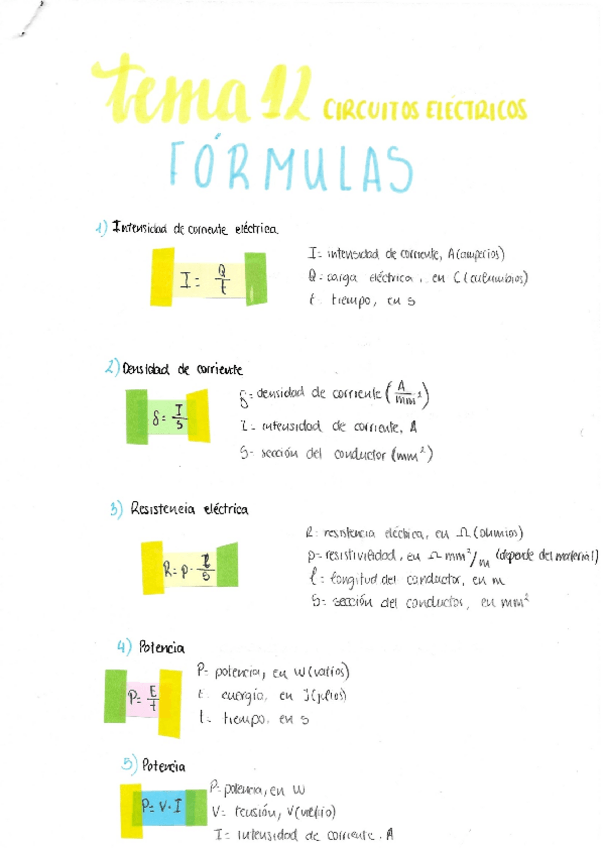 tema 12 CIRCUITOS ELÉCTRICOS
FÓRMULAS
1) Intensidad de corriente eléctrica
I = Q/t
I = intensidad de corriente, A (amperios)
Q = carga eléctrica, en C (culumbios)
t = tiempo, en s
2) Densidad de corriente
δ = I/S
δ = densidad de corriente (A/mm²)
I = intensidad de corriente, A
S = sección del conductor (mm²)
3) Resistencia eléctrica
R = ρ · l/S
R = resistencia eléctrica, en Ω (ohmios)
ρ = resistividad, en Ω mm²/m (depende del material)
l = longitud del conductor, en m
S = sección del conductor, en mm²
4) Potencia
P = E/t
P = potencia, en W (vatios)
E = energía, en J (julios)
t = tiempo, en s
5) Potencia
P = V · I
P = potencia, en W
V = tensión, V (voltio)
I = intensidad de corriente, A